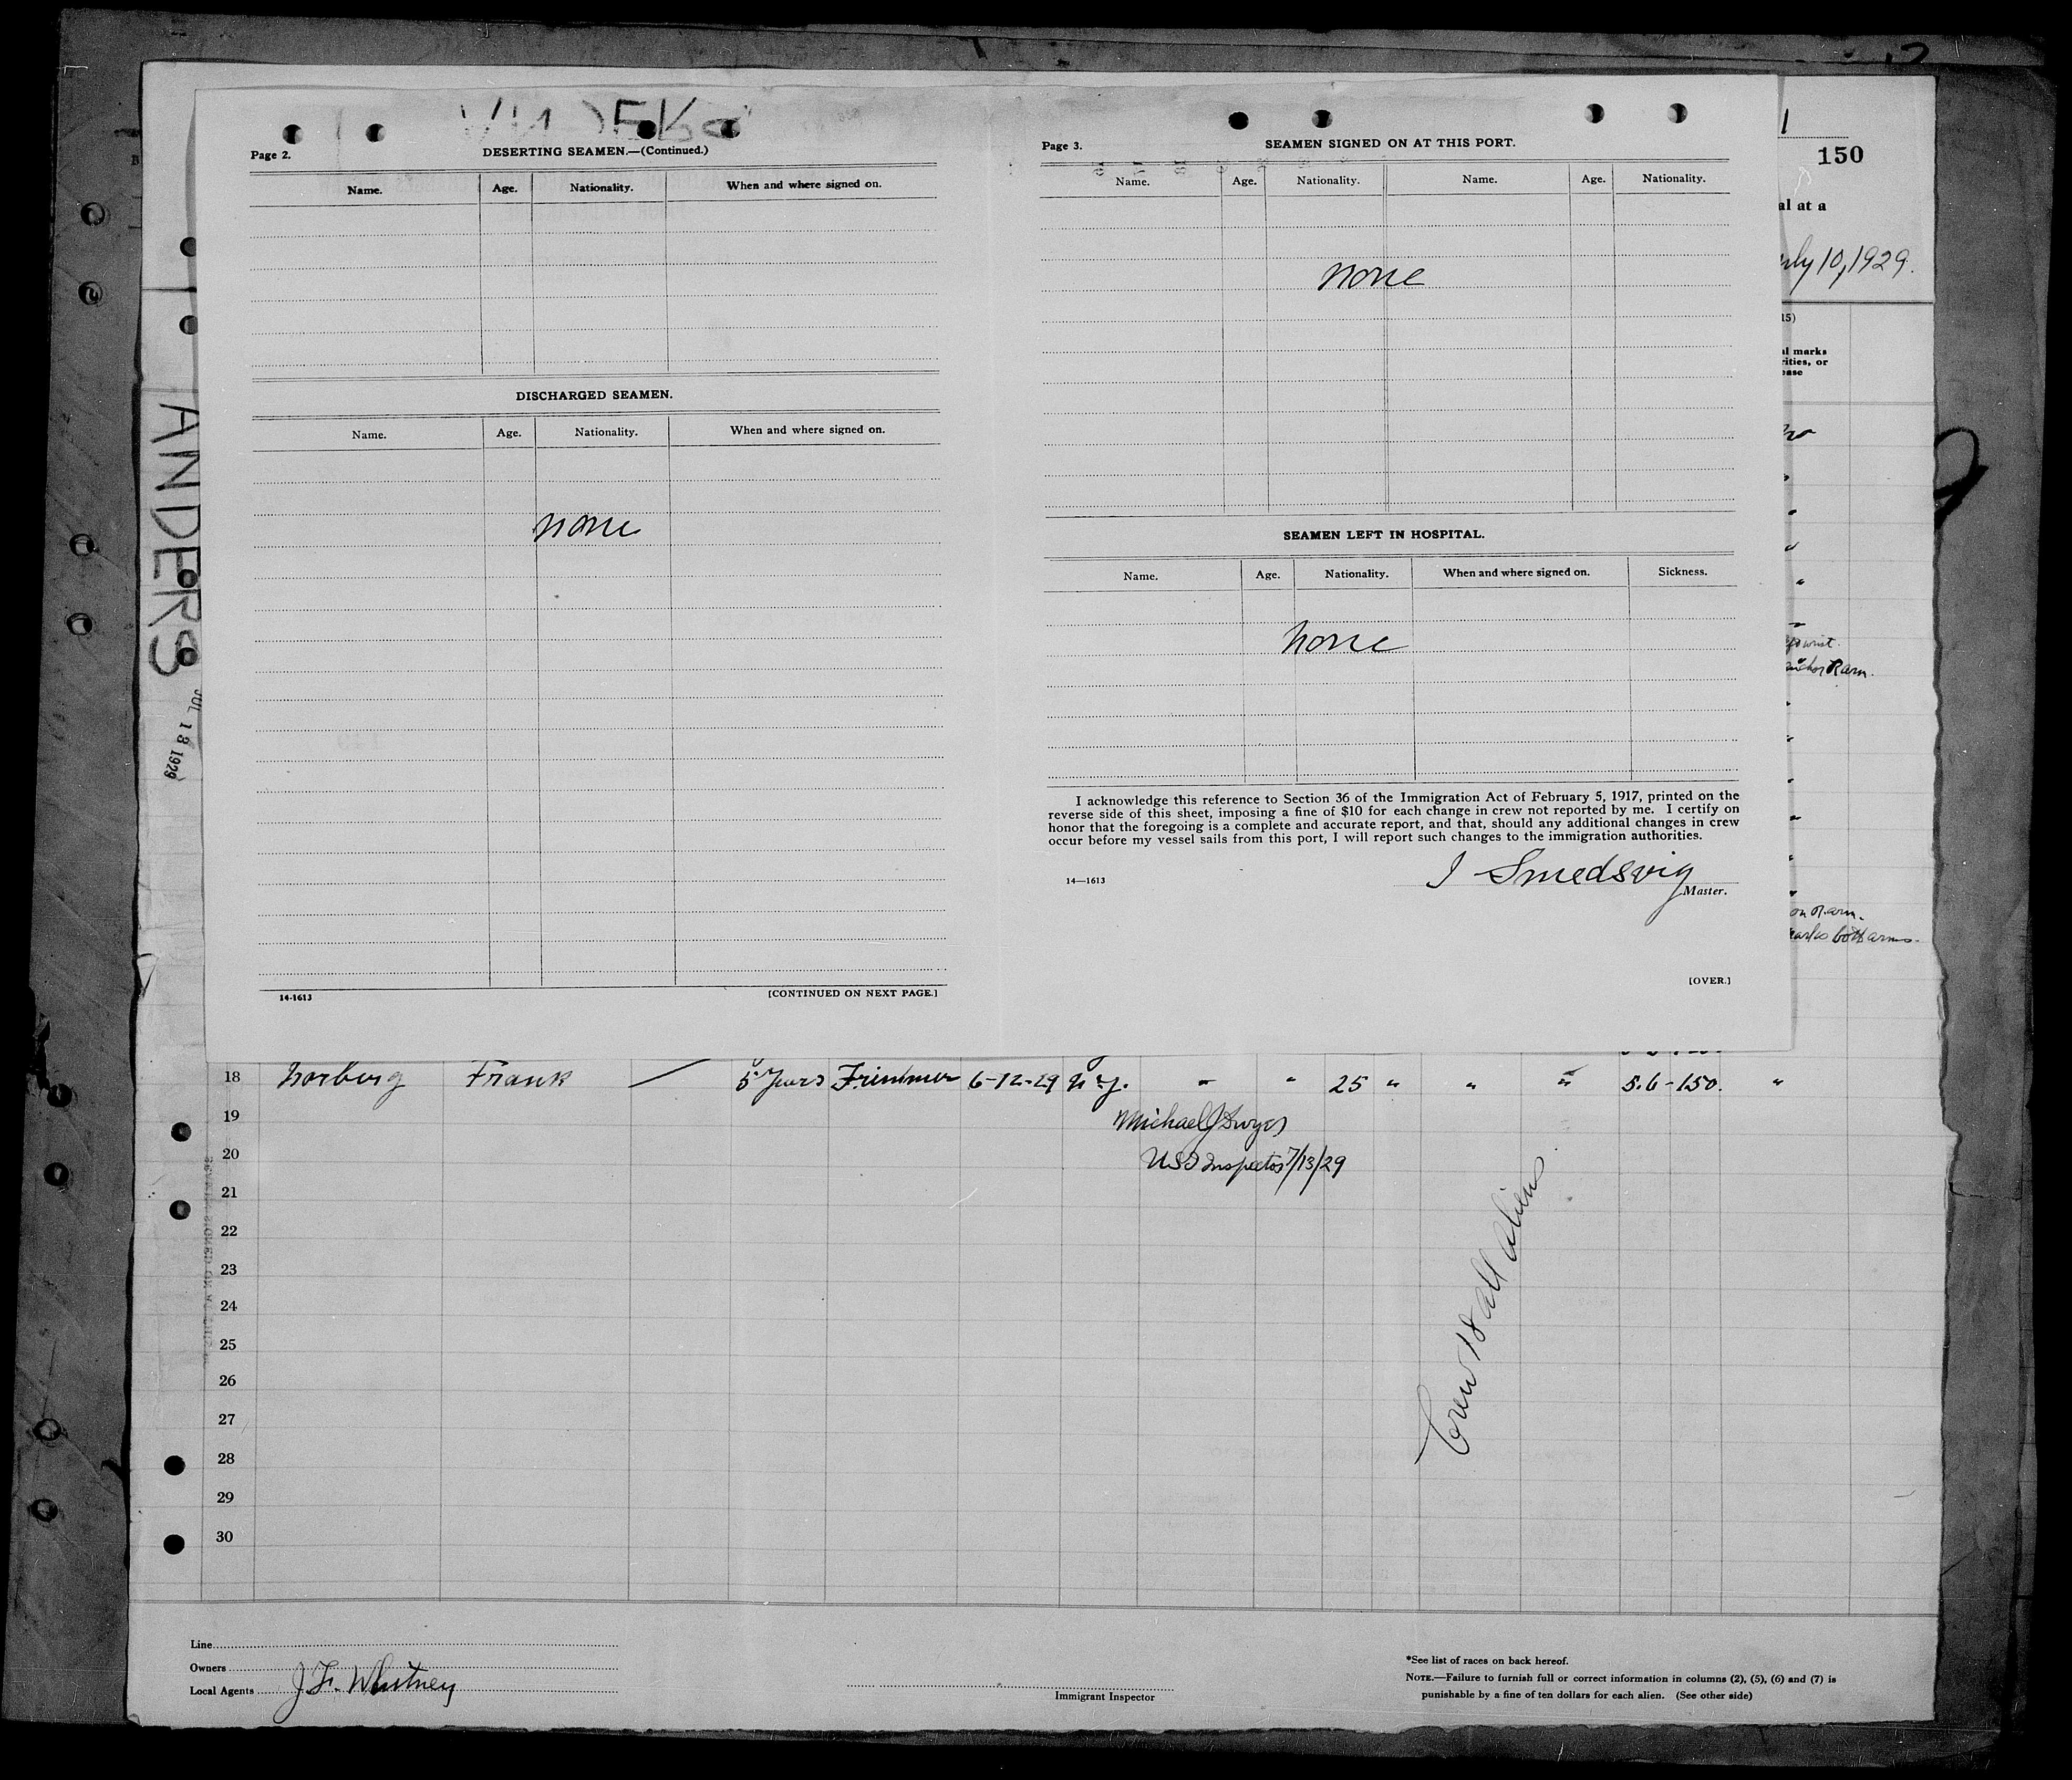 Page 2.
DESERTING SEAMEN.—(Continued.)
Name. Age. Nationality. When and where signed on.
DISCHARGED SEAMEN.
Name. Age. Nationality. When and where signed on.
none
14-1613
[CONTINUED ON NEXT PAGE.]
Page 3.
SEAMEN SIGNED ON AT THIS PORT.
Name. Age. Nationality. Name. Age. Nationality.
none
SEAMEN LEFT IN HOSPITAL.
Name. Age. Nationality. When and where signed on. Sickness.
none
I acknowledge this reference to Section 36 of the Immigration Act of February 5, 1917, printed on the
reverse side of this sheet, imposing a fine of $10 for each change in crew not reported by me. I certify on
honor that the foregoing is a complete and accurate report, and that, should any additional changes in crew
occur before my vessel sails from this port, I will report such changes to the immigration authorities.
I Smedsvig
14—1613
Master.
[OVER.]
150
al at a
uly 10, 1929.
15)
al marks
rities, or
ease
wrist.
anchor R arm.
on R. arm.
marks both arms.
ANDERS
JUL 13 1929
18 Norberg Frank 5 Years 6-12-29 N.Y. " " 25 " " " 5.6-150. "
19
Michael J Dwyer
20
USI Inspector 7/13/29
21
22
23
24
25
26
27
28
29
30
Crew 18 all aliens
Line
Owners
Local Agents J. F. Whitney
Immigrant Inspector
*See list of races on back hereof.
NOTE.—Failure to furnish full or correct information in columns (2), (5), (6) and (7) is
punishable by a fine of ten dollars for each alien. (See other side)